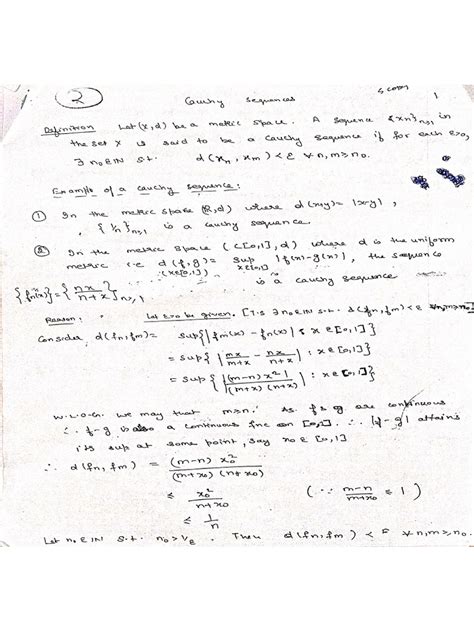 2
Cauchy Sequences
1
Definition Let (X,d) be a metric space. A sequence {xn}n≥1 in
the set X is said to be a Cauchy sequence if for each ε>0,
∃ n₀∈IN s.t. d(xn, xm) < ε ∀ n,m≥n₀.
Example of a cauchy sequence:
① In the metric space (R,d) where d(x,y)= |x-y|,
{1/n}n≥1 is a cauchy sequence.
② In the metric space (C[0,1],d) where d is the uniform
metric i.e d(f,g)= sup x∈[0,1] |f(x)-g(x)|, the sequence
{fn(x)}={nx/(n+x)}n≥1 (x∈[0,1]) is a cauchy sequence
Reason: Let ε>0 be given. [T.S ∃ n₀∈IN s.t. d(fn,fm)<ε ∀n,m≥n₀
Consider d(fn,fm)= sup{|fm(x) - fn(x)| : x∈[0,1]}
= sup{|mx/(m+x) - nx/(n+x)| : x∈[0,1]}
= sup{|(m-n)x²|/((m+x)(n+x)) : x∈[0,1]}
W.L.O.G. We may that m≥n. As f & g are continuous
∴ f-g is also a continuous fnc on [0,1]. ∴ |f-g| attains
its sup at some point, say x₀∈[0,1]
∴ d(fn, fm) = (m-n) x₀²/((m+x₀)(n+x₀))
≤ x₀²/(n+x₀) (∵ (m-n)/(m+x₀) ≤ 1)
≤ 1/n
Let n₀∈IN s.t. n₀>1/ε. Then d(fn,fm) < ε ∀ n,m≥n₀.